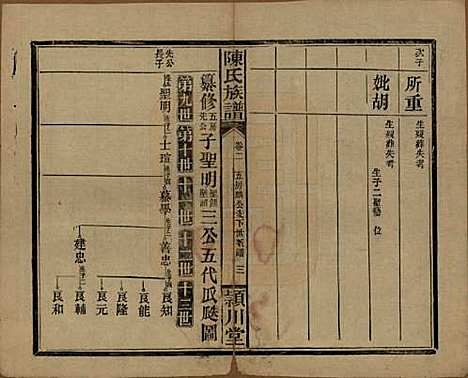 次子
所重
生殁葬失考
妣胡
生殁葬失考
生子二
位
陳氏族譜
卷二
三
潁川堂
纂修五房先公子聖明
三公五代瓜瓞圖
第九世第十世十一世十二世十三世
先公長子
聖明
士瑄
慕學
善忠
良知
良能
良隆
良元
建忠
良輔
良和